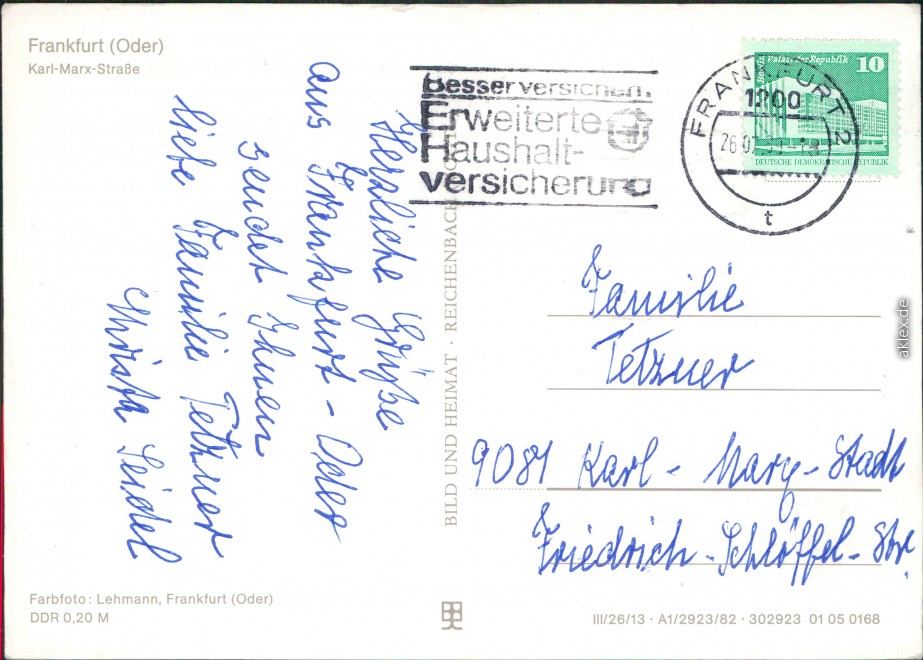 Frankfurt (Oder)
Karl-Marx-Straße
Herzliche Grüße
aus Frankfurt - Oder
sendet Ihnen
liebe Familie Tetzner
Christa Seidel
Farbfoto: Lehmann, Frankfurt (Oder)
DDR 0,20 M
BILD UND HEIMAT · REICHENBACH
Besser versichert.
Erweiterte
Haushalt-
versicherung
FRANKFURT 2
1200
t
Berlin Palast der Republik 10
DEUTSCHE DEMOKRATISCHE REPUBLIK
Familie
Tetzner
9081 Karl - Marx - Stadt
Friedrich - Schlöffel - Str.
III/26/13 · A1/2923/82 · 302923 01 05 0168
aklex.de